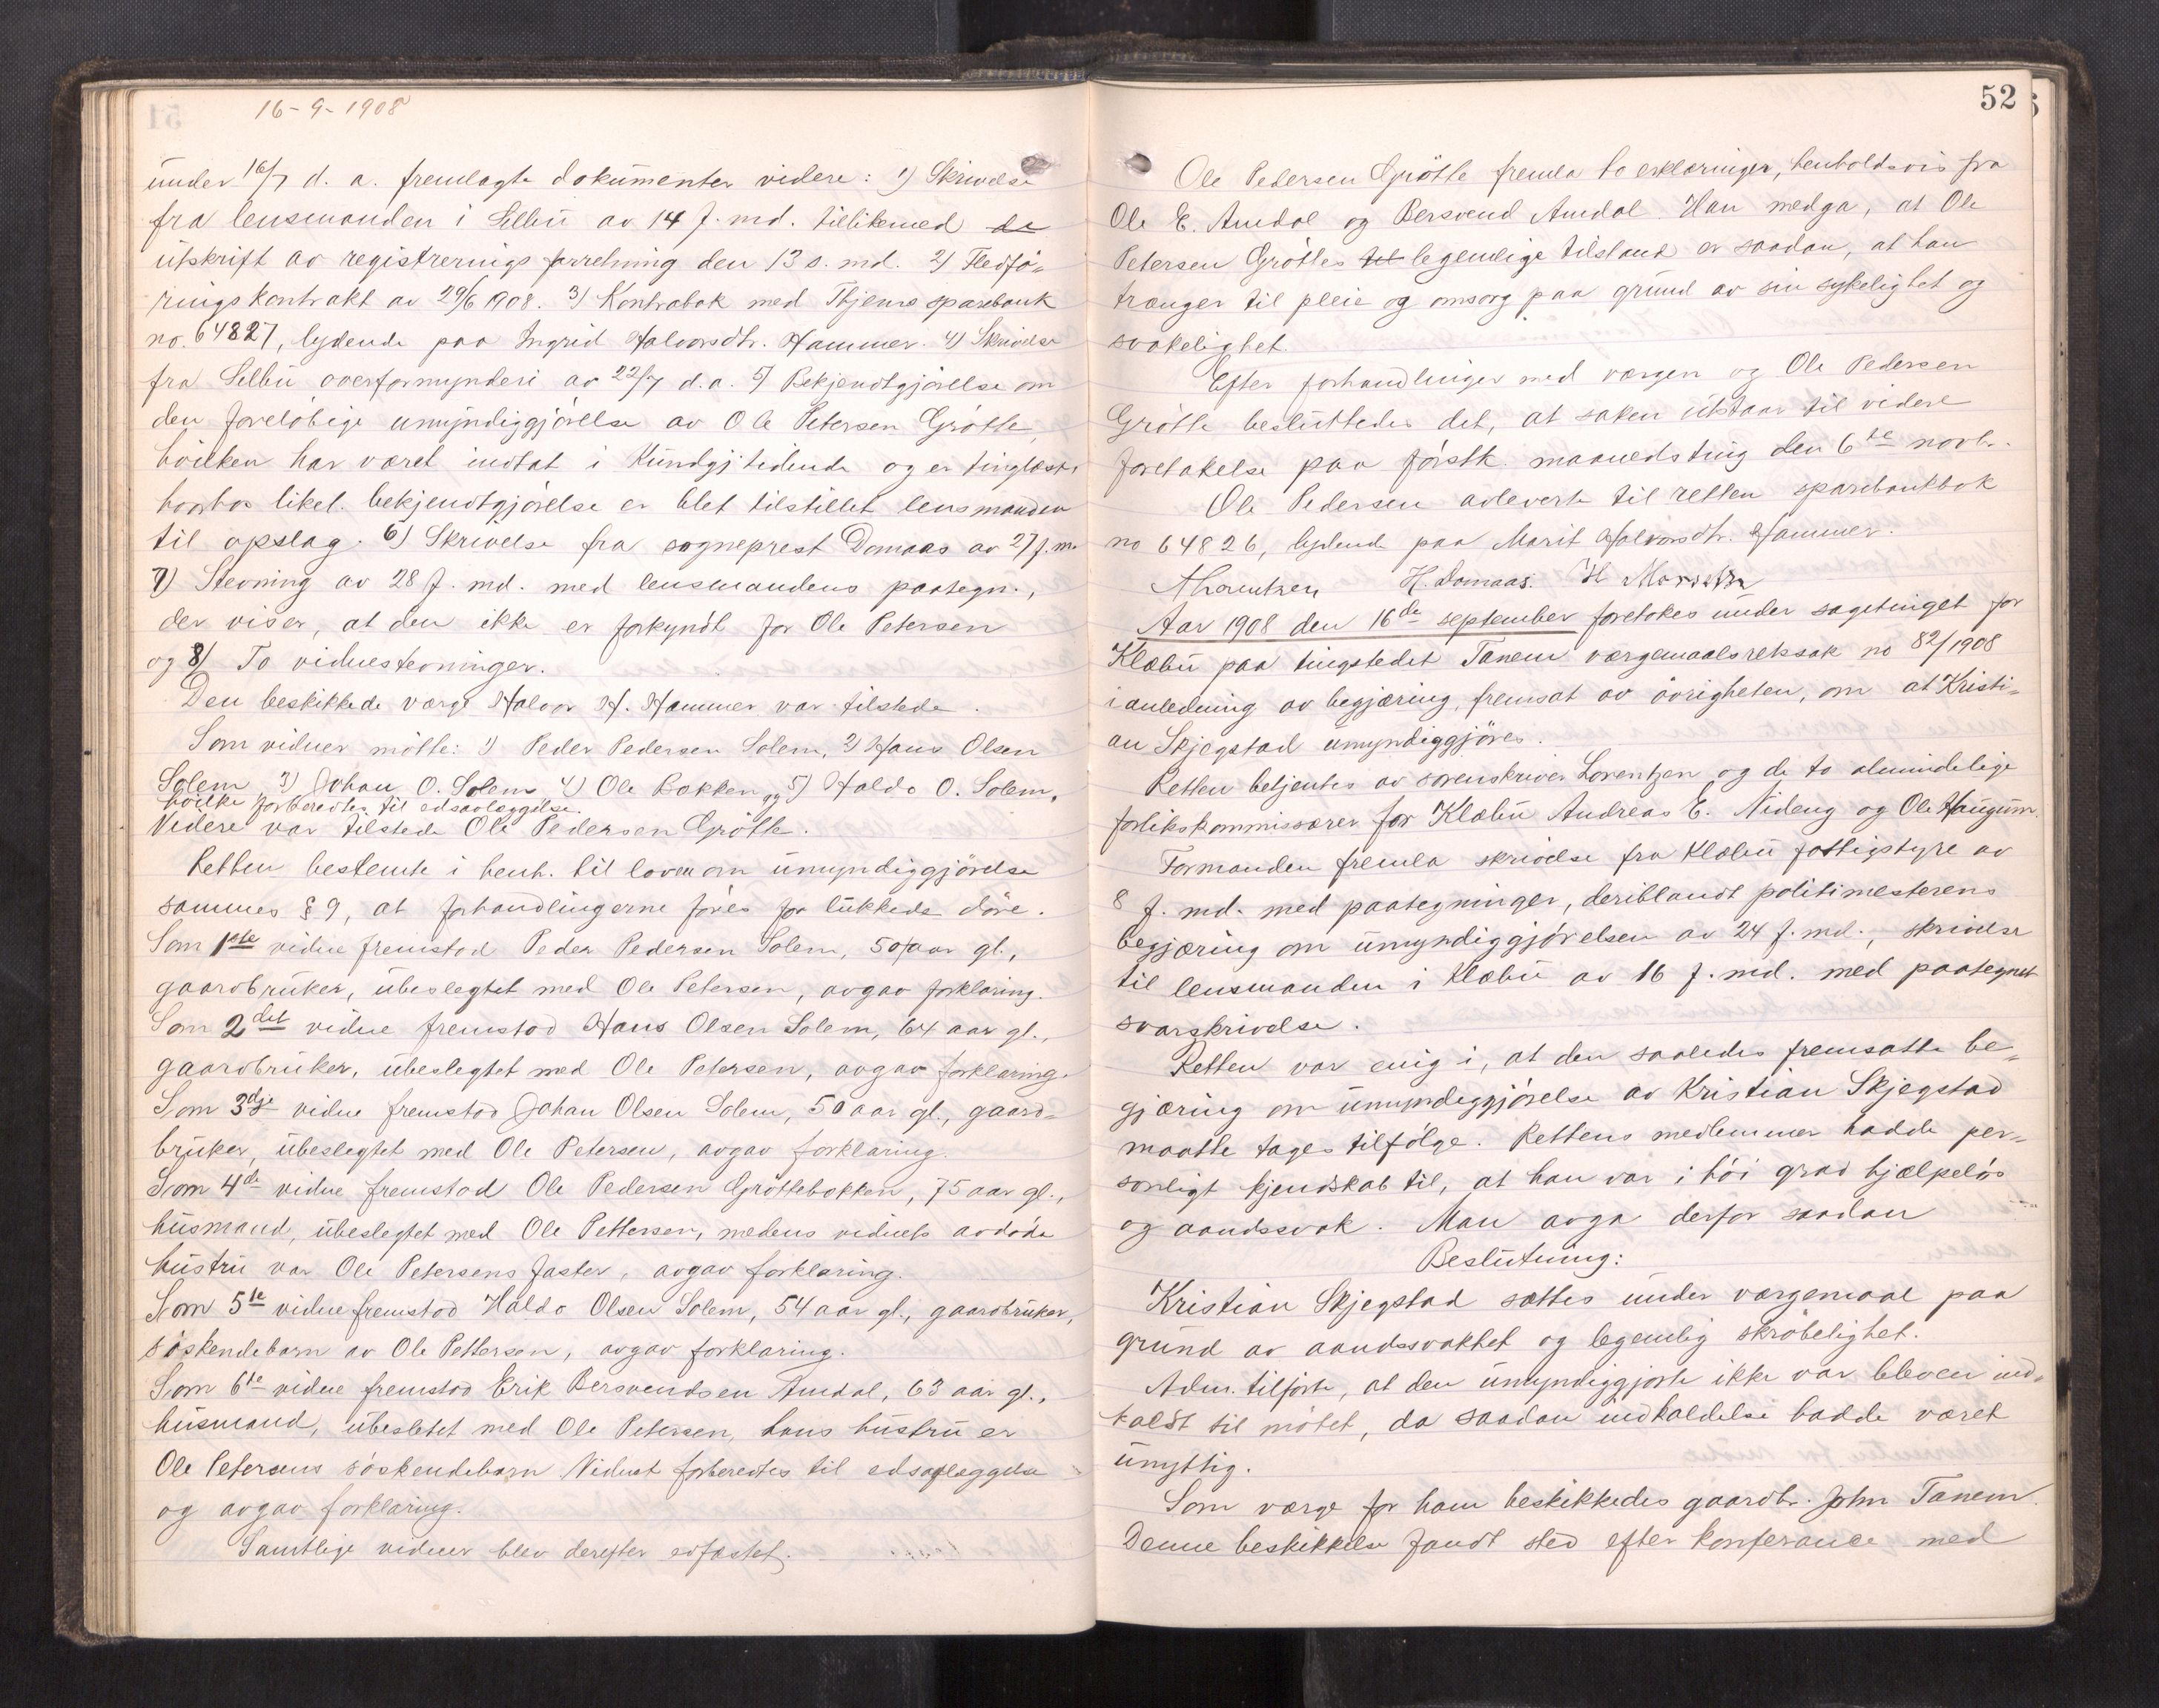 16-9-1908
under 16/7 d. a. fremlagte dokumenter videre: 1) Skrivelse
fra lensmanden i Selbu av 14 f. md. tillikemed de
utskrift av registrerings forretning den 13 s. md. 2) Fledfö-
ringskontrakt av 29/6 1908. 3) Kontrabok med sparebank
no. 64827, lydende paa Ingrid Halvorsdtr. Hammer. 4) Skrivelse
fra Selbu overformynderi av 22/7 d. a. 5) Bekjendtgjörelse om
den forelöbige umyndiggjörelse av Ole Petersen Grötte,
hvilken har været indtat i Kundgj.tidende og er tinglæst,
hvorhos likel. bekjendtgjörelse er blet tilstillet lensmanden
til opslag. 6) Skrivelse fra sogneprest Domaas av 27 f. m.
7) Stevning av 28 f. md. med lensmandens paategn.,
der viser, at den ikke er forkyndt for Ole Petersen
og 8) To vidnestevninger.
Den beskikkede værge Halvor H. Hammer var tilstede.
Som vidner mötte: 1) Peder Pedersen Solem, 2) Hans Olsen
Solem, 3) Johan O. Solem 4) Ole Bakken og 5) Haldo O. Solem,
hvilke forberedtes til edsavlæggelse.
Videre var tilstede Ole Pedersen Grötte.
Retten bestemte i henh. til loven om umyndiggjörelse
sammes § 9, at forhandlingerne föres for lukkede döre.
Som 1ste vidne fremstod Peder Pedersen Solem, 50 aar gl.,
gaardbruker, ubeslegtet med Ole Petersen, avgav forklaring.
Som 2det vidne fremstod Hans Olsen Solem, 64 aar gl.,
gaardbruker, ubeslegtet med Ole Petersen, avgav forklaring.
Som 3dje vidne fremstod Johan Olsen Solem, 50 aar gl., gaard-
bruker, ubeslegtet med Ole Petersen, avgav forklaring.
Som 4de vidne fremstod Ole Pedersen Gröttebakken, 75 aar gl.,
husmand, ubeslegtet med Ole Pettersen, medens vidnets avdöde
hustru var Ole Petersens faster, avgav forklaring.
Som 5te vidne fremstod Haldo Olsen Solem, 54 aar gl., gaardbruker,
söskendebarn av Ole Pettersen, avgav forklaring.
Som 6te vidne fremstod Erik Bersvendsen Amdal, 63 aar gl.,
husmand, ubesletet med Ole Petersen, hans hustru er
Ole Petersens söskendebarn Vidnet forberedtes til edsavlæggelse
og avgav forklaring.
Samtlige vidner blev derefter edfæstet.
52
Ole Pedersen Grötte fremla to erklæringer, henholdsvis fra
Ole E. Amdal og Bersvend Amdal. Han medga, at Ole
Petersen Gröttes til legemlige tilstand er saadan, at han
trænger til pleie og omsorg paa grund av sin sykelighet og
svakelighet.
Efter forhandlinger med værgen og Ole Pedersen
Grötte besluttedes det, at saken utstaar til videre
foretakelse paa förstk. maanedsting den 6te novbr.
Ole Pedersen avleverte til retten sparebankbok
no 64826, lydende paa Marit Halvorsdtr. Hammer.
A Lorentzen H. Domaas. H Morseth
Aar 1908 den 16de september foretokes under sagetinget for
Klæbu paa tingstedet Tanem værgemaalsretssak no 82/1908
i anledning av begjæring, fremsat av övrigheten, om at Kristi-
an Skjegstad umyndiggjöres.
Retten betjentes av sorenskriver Lorentzen og de to almindelige
forlikskommissærer for Klæbu Andreas E. Nideng og Ole Haugum.
Formanden fremla skrivelse fra Klæbu fattigstyre av
8 f. md. med paategninger, deriblandt politimesterens
begjæring om umyndiggjörelsen av 24 f. md., skrivelse
til lensmanden i Klæbu av 16 f. md. med paategnet
svarskrivelse.
Retten var enig i, at den saaledes fremsatte be-
gjæring om umyndiggjörelse av Kristian Skjegstad
maatte tages tilfölge. Rettens medlemmer hadde per-
sonligt kjendskab til, at han var i höi grad hjælpelös
og aandssvak. Man avga derfor saadan
Beslutning:
Kristian Skjegstad sættes under værgemaal paa
grund av aandssvakhet og legemlig skröbelighet.
Adm. tilförte, at den umyndiggjorte ikke var bleven ind-
kaldt til mötet, da saadan indkaldelse hadde været
unyttig.
Som værge for ham beskikkedes gaardbr. John Tanem.
Denne beskikkelse fandt sted efter konferance med